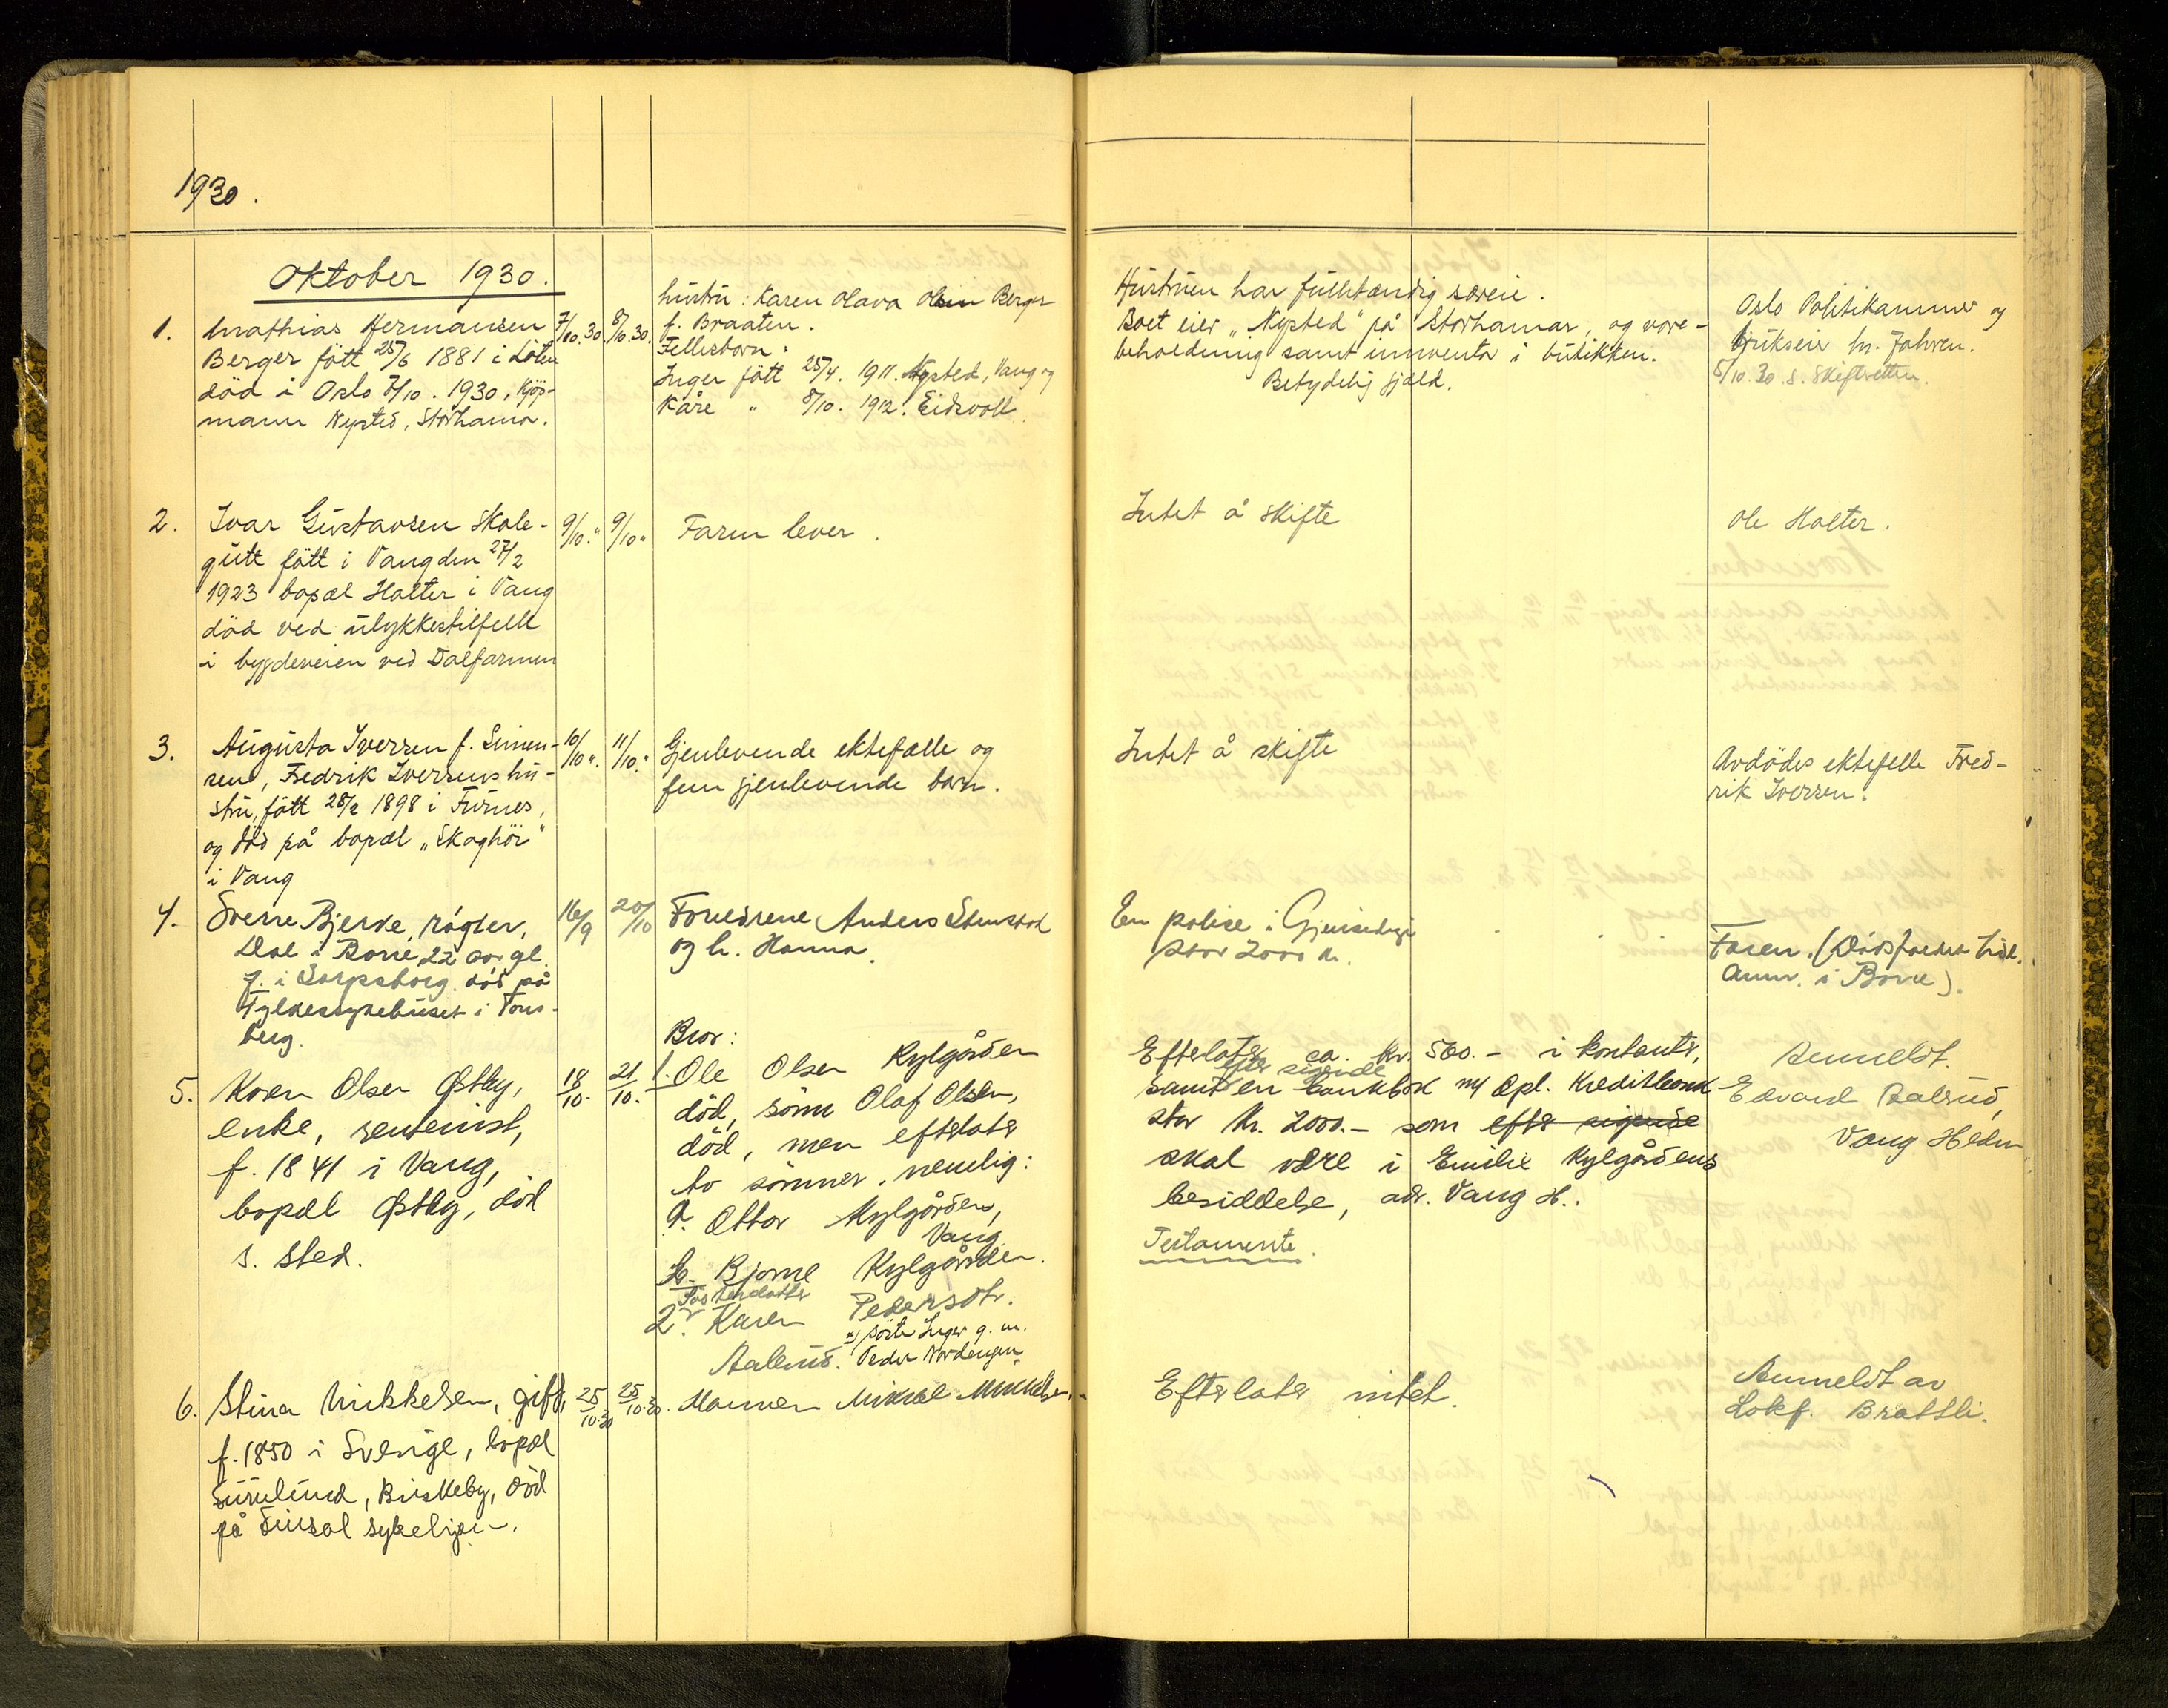 1930.
Oktober 1930.
1. Mathias Hermansen 7/10.30 8/10.30.
Berger fött 25/6 1881 i Löten
död i Oslo 7/10. 1930, kjöp-
mann Nysted, Storhamar.
hustru: Karen Olava Olsen Berger
f. Braaten.
Fellesbarn:
Inger fött 25/4. 1911. Nysted, Vang og
Kåre " 8/10. 1912. Eidsvoll.
Hustruen har fullstændig særeie.
Boet eier „Nysted" på Storhamar, og vare-
beholdning samt inventar i butikken.
Betydelig gjæld.
Oslo Politikammer og
brukseier hr. Jahren.
8/10.30 s. skifteretten.
2. Ivar Gustavsen skole- 9/10." 9/10"
gutt fött i Vang den 27/2
1923 bopæl Halter i Vang
död ved ulykkestilfelle
i bygdeveien ved Dalfarmen
Faren lever.
Intet å skifte
Ole Halter.
3. Augusta Iversen f. Simen- 10/10". 11/10."
sen, Fredrik Iversens hu-
stru, fött 28/2 1898 i Furnes,
og död på bopæl „Skaghöi"
i Vang
Gjenlevende ektefælle og
fem gjenlevende barn.
Intet å skifte
Avdödes ektefelle Fred-
rik Iversen.
4. Sverre Bjerke, røgter, 16/9 20/10
Dal i Borre, 22 aar gl.
f. i Sarpsborg. død på
Fylkessykehuset i Töns-
berg.
Foreldrene Anders Stenstad
og h. Hanna.
En polise i Gjensidige
stor 2000 kr.
Faren. (Dødsfaldet tidl.
anm. i Borre).
5. Karen Olsen Østby, 18/10. 21/10.
enke, rentenist,
f. 1841 i Vang,
bopæl Østby, död
s. sted.
Bror:
1. Ole Olsen Kylgården
död, sönn Olaf Olsen,
död, men efterlater
to sönner, nemlig:
a. Ottar Kylgården,
Vang
b. Bjarne Kylgården.
Fosterdatter
2. Karen Pedersdtr.
x) søster Inger g. m.
Aalerud. Peder Nordengen
Efterlater ca. kr. 560.- i kontanter,
efter sigende
samt en bankbok m/ Opl. Kreditbank
stor kr. 2000.- som efter sigende
skal være i Emilie Kylgårdens
besiddelse, adr. Vang H..
Testamente.
Anmeldt.
Edvard Aalerud,
Vang Hedm
6. Stina Mikkelsen, gift, 25/10.30 25/10.30.
f. 1850 i Sverige, bopæl
Furulund, Briskeby, död
på Finsal sykehjem.
Mannen Mikkel Mikkelsen.
Efterlater intet.
Anmeldt av
Lokf. Brattli.